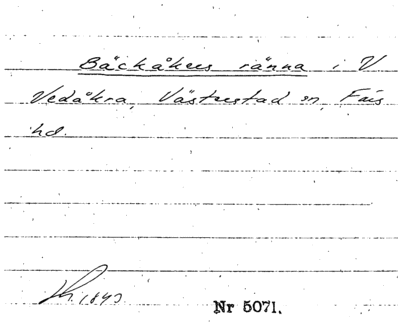 Bäckåkers ränna i V
Vedåkra, Västrestad sn, Färs
hd.
Nr 5071.